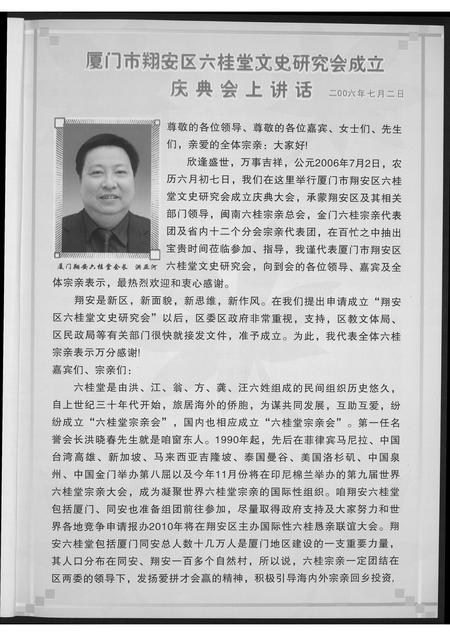 厦门市翔安区六桂堂文史研究会成立
庆典会上讲话 二00六年七月二日
尊敬的各位领导、尊敬的各位嘉宾、女士们、先生
们,亲爱的全体宗亲:大家好!
欣逢盛世,万事吉祥,公元2006年7月2日,农
历六月初七日,我们在这里举行厦门市翔安区六桂
堂文史研究会成立庆典大会,承蒙翔安区及其相关
部门领导,闽南六桂宗亲总会,金门六桂宗亲代表
团及省内十二个分会宗亲代表团,在百忙之中抽出
宝贵时间莅临参加、指导,我谨代表厦门市翔安区
六桂堂文史研究会,向到会的各位领导、嘉宾及全
厦门翔安六桂堂会长 洪亚河
体宗亲表示,最热烈欢迎和衷心感谢。
翔安是新区,新面貌,新思维,新作风。在我们提出申请成立“翔安
区六桂堂文史研究会”以后,区委区政府非常重视,支持,区教文体局、
区民政局等有关部门很快就接发文件,准予成立。为此,我代表全体六桂
宗亲表示万分感谢!
嘉宾们、宗亲们:
六桂堂是由洪、江、翁、方、龚、汪六姓组成的民间组织历史悠久,
自上世纪三十年代开始,旅居海外的侨胞,为谋共同发展,互助互爱,纷
纷成立“六桂堂宗亲会”,国内也相应成立“六桂堂宗亲会”。第一任名
誉会长洪晓春先生就是咱窗东人。1990年起,先后在菲律宾马尼拉、中国
台湾高雄、新加坡、马来西亚吉隆坡、泰国曼谷、美国洛杉矶、中国泉
州、中国金门举办第八届以及今年11月份将在印尼棉兰举办的第九届世界
六桂堂宗亲大会,成为凝聚世界六桂堂宗亲的国际性组织。咱翔安六桂堂
包括厦门、同安也准备组团前往参加,尽量取得政府支持及大家努力和世
界各地竞争申请报办2010年将在翔安区主办国际性六桂恳亲联谊大会。翔
安六桂堂包括厦门同安总人数十几万人是厦门地区建设的一支重要力量,
其人口分布在同安、翔安一百多个自然村,所以说,六桂宗亲一定团结在
区两委的领导下,发扬爱拼才会赢的精神,积极引导海内外宗亲回乡投资,